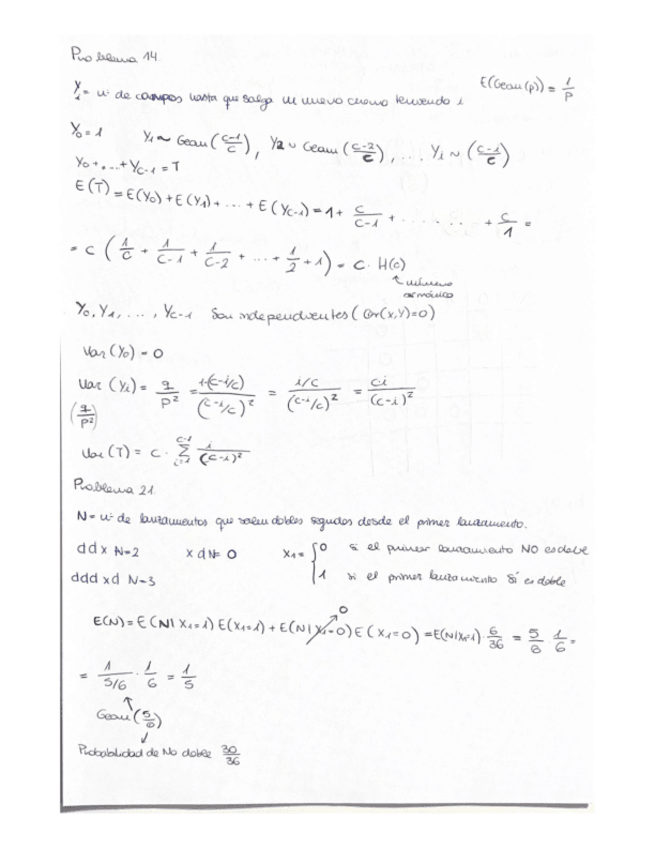 Problema 14
Y_i = nº de campos hasta que salga un nuevo cromo teniendo i     E(Geom(p)) = 1/p
Y_0 = 1     Y_1 ~ Geom((c-1)/c), Y_2 ~ Geom((c-2)/c), ... Y_i ~ ((c-i)/c)
Y_0 + ... + Y_{c-1} = T
E(T) = E(Y_0) + E(Y_1) + ... + E(Y_{c-1}) = 1 + c/(c-1) + ........ + c/1 =
= c (1/c + 1/(c-1) + 1/(c-2) + ... + 1/2 + 1) = c · H(c)
↖ número
armónico
Y_0, Y_1, ..., Y_{c-1} Son independientes (Cor(x,Y)=0)
Var (Y_0) = 0
Var (Y_i) = q/p² = 1-(c-i/c)/(c-i/c)² = i/c/(c-i/c)² = ci/(c-i)²
(q/p²)
Var (T) = c · Σ_{i=1}^{c-1} i/(c-i)²
Problema 21
N = nº de lanzamientos que salen dobles seguidos desde el primer lanzamiento.
ddx N=2     xd N= 0     X_1 = { 0 si el primer lanzamiento NO es doble
dddxd N=3     1 si el primer lanzamiento Sí es doble
0
E(N) = E(N|X_1=1) E(X_1=1) + E(N|X_1=0) E(X_1=0) = E(N|X_1=1) · 6/36 = 5/8 · 1/6 =
= 1/(5/6) · 1/6 = 1/5
↑
Geom(5/6)
↓
Probabilidad de No doble 30/36